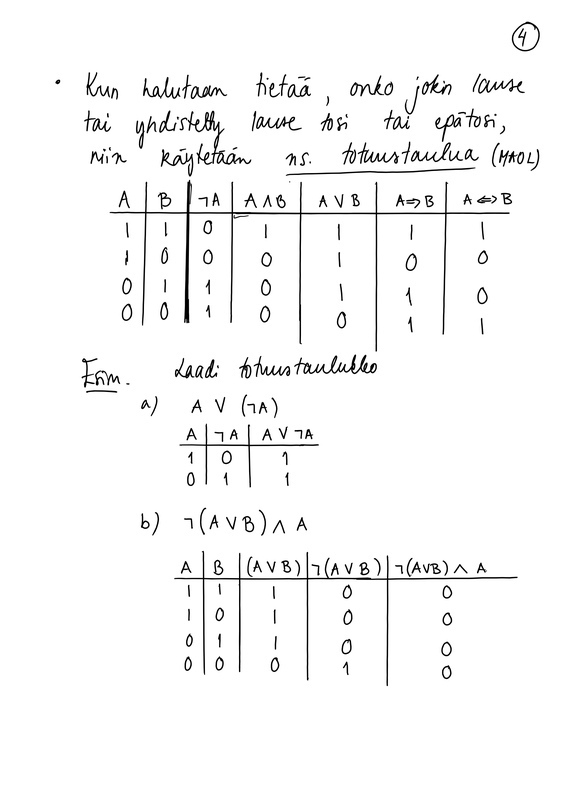 4
• Kun halutaan tietää, onko jokin lause
tai yhdistetty lause tosi tai epätosi,
niin käytetään ns. totuustaulua (MAOL)
A | B | ¬A | A ∧ B | A ∨ B | A ⇒ B | A ⇔ B
1 | 1 | 0 | 1 | 1 | 1 | 1
1 | 0 | 0 | 0 | 1 | 0 | 0
0 | 1 | 1 | 0 | 1 | 1 | 0
0 | 0 | 1 | 0 | 0 | 1 | 1
Esim. Laadi totuustaulukko
a) A ∨ (¬A)
A | ¬A | A ∨ ¬A
1 | 0 | 1
0 | 1 | 1
b) ¬(A ∨ B) ∧ A
A | B | (A ∨ B) | ¬(A ∨ B) | ¬(A∨B) ∧ A
1 | 1 | 1 | 0 | 0
1 | 0 | 1 | 0 | 0
0 | 1 | 1 | 0 | 0
0 | 0 | 0 | 1 | 0